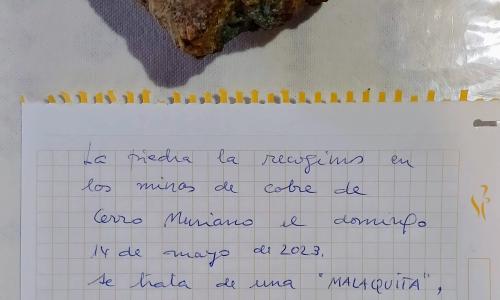 La piedra la recogimos en
las minas de cobre de
Cerro Muriano el domingo
14 de mayo de 2023.
se trata de una "MALAQUITA",